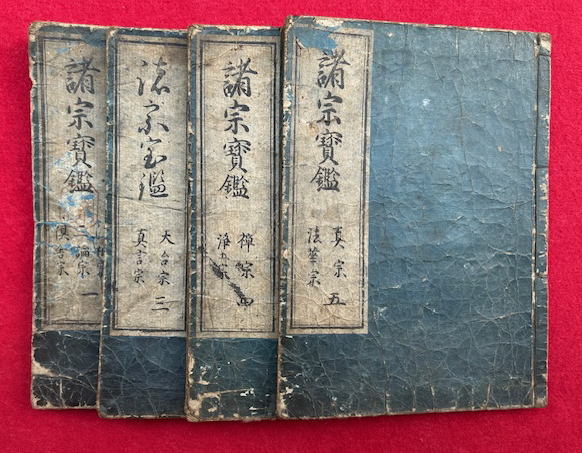 諸宗寳鑑
真宗
法華宗
五
諸宗寳鑑
禅宗
四
諸宗宝鑑
天台宗
真言宗
三
諸宗寳鑑
三論宗
倶舎宗
一